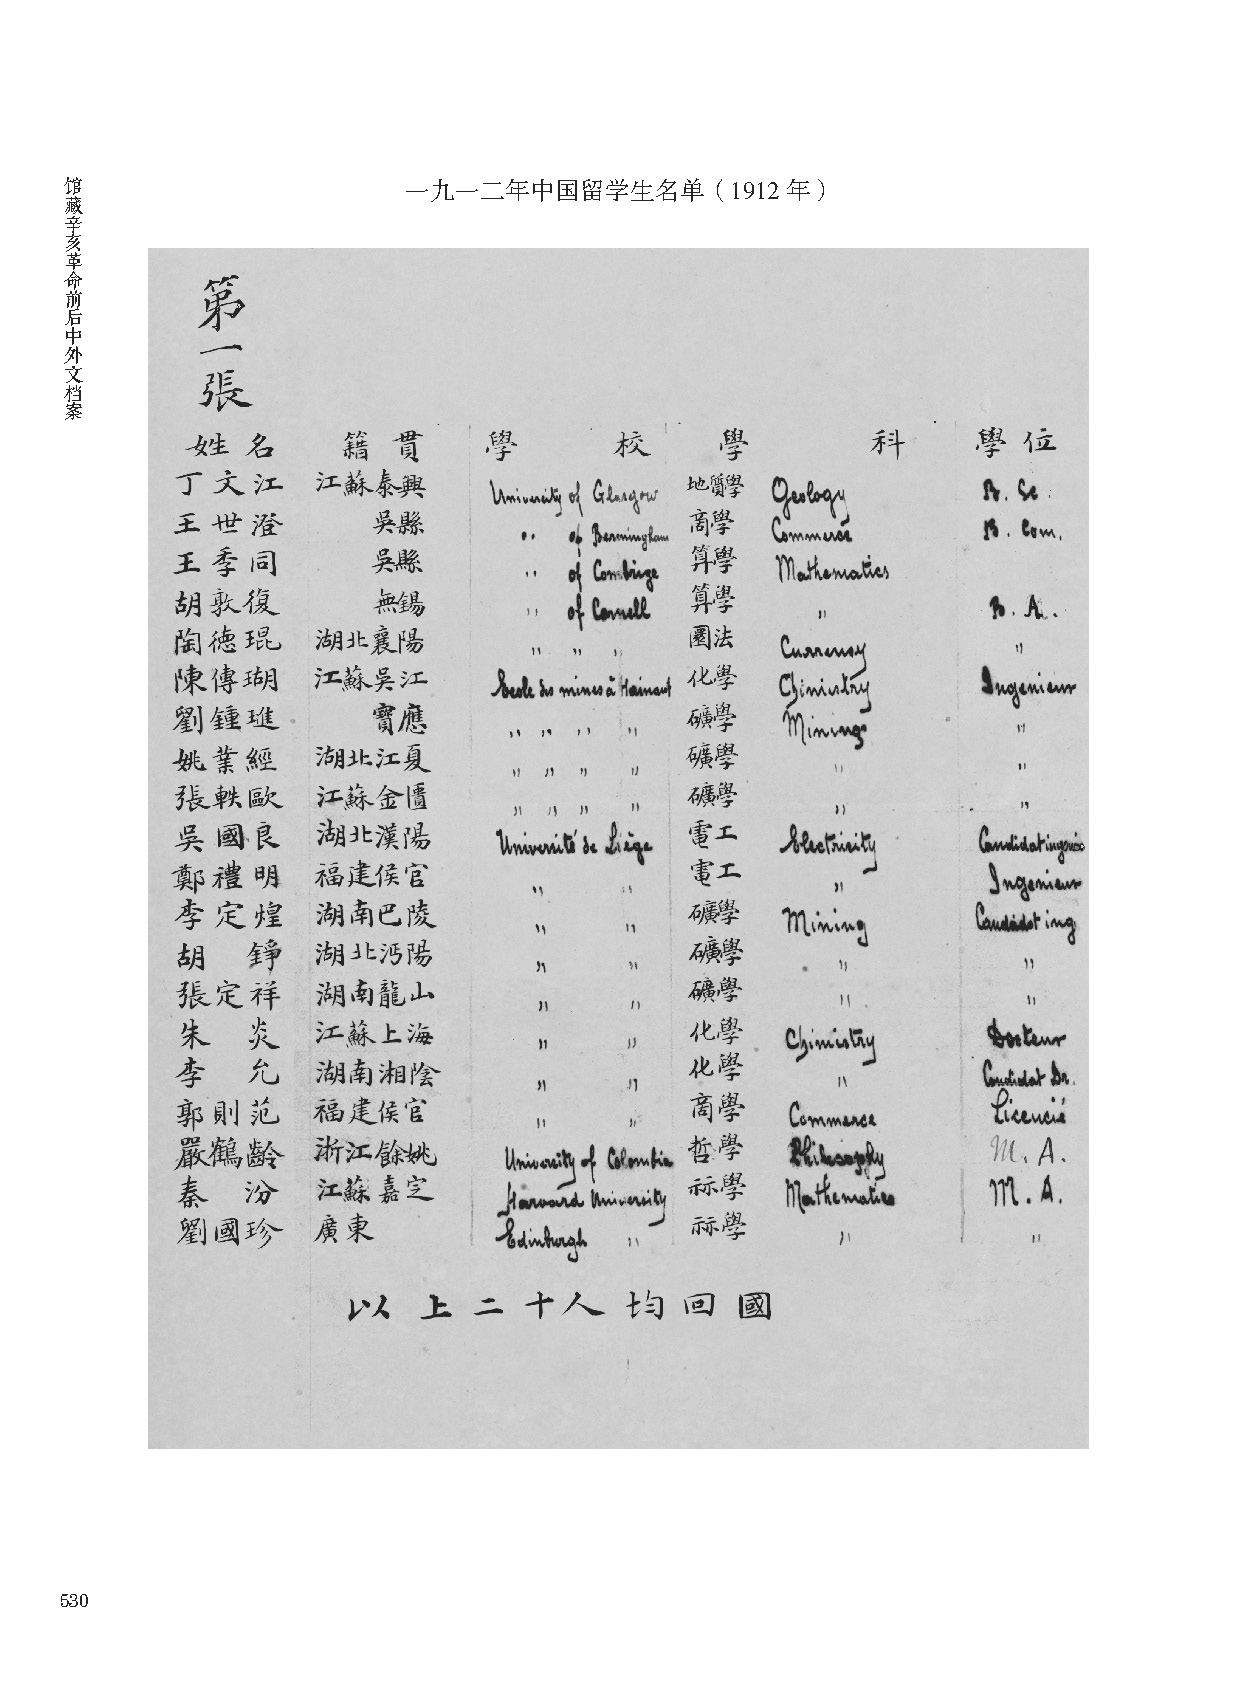 馆藏辛亥革命前后中外文档案
一九一二年中国留学生名单（1912 年）
第一張
姓名 籍貫 學校 學科 學位
丁文江 江蘇泰興 University of Glasgow 地質學 Geology B. Sc.
王世澄 吳縣 " of Bermingham 商學 Commerce B. Com.
王季同 吳縣 " of Combrige 算學 Mathematics
胡敦復 無錫 " of Cornell 算學 " B. A.
陶德琨 湖北襄陽 " " " 圜法 Currency "
陳傳瑚 江蘇吳江 Ecole des mines à Hainaut 化學 Chimistry Ingenieur
劉鍾璡 寶應 " " " " 礦學 Mining "
姚業經 湖北江夏 " " " " 礦學 " "
張軼歐 江蘇金匱 " " " " 礦學 " "
吳國良 湖北漢陽 Université de Liège 電工 Electricity Candidat
鄭禮明 福建侯官 " " 電工 " Ingenieur
李定煌 湖南巴陵 " " 礦學 Mining Candidat ing
胡錚 湖北沔陽 " " 礦學 " "
張定祥 湖南龍山 " " 礦學 " "
朱炎 江蘇上海 " " 化學 Chimistry Docteur
李允 湖南湘陰 " " 化學 " Candidat Dr.
郭則范 福建侯官 " " 商學 Commerce Licencié
嚴鶴齡 浙江餘姚 University of Colombia 哲學 Philosophy M. A.
秦汾 江蘇嘉定 Harvard University 祘學 Mathematics M. A.
劉國珍 廣東 Edinburgh " 祘學 " "
以上二十人均回國
530